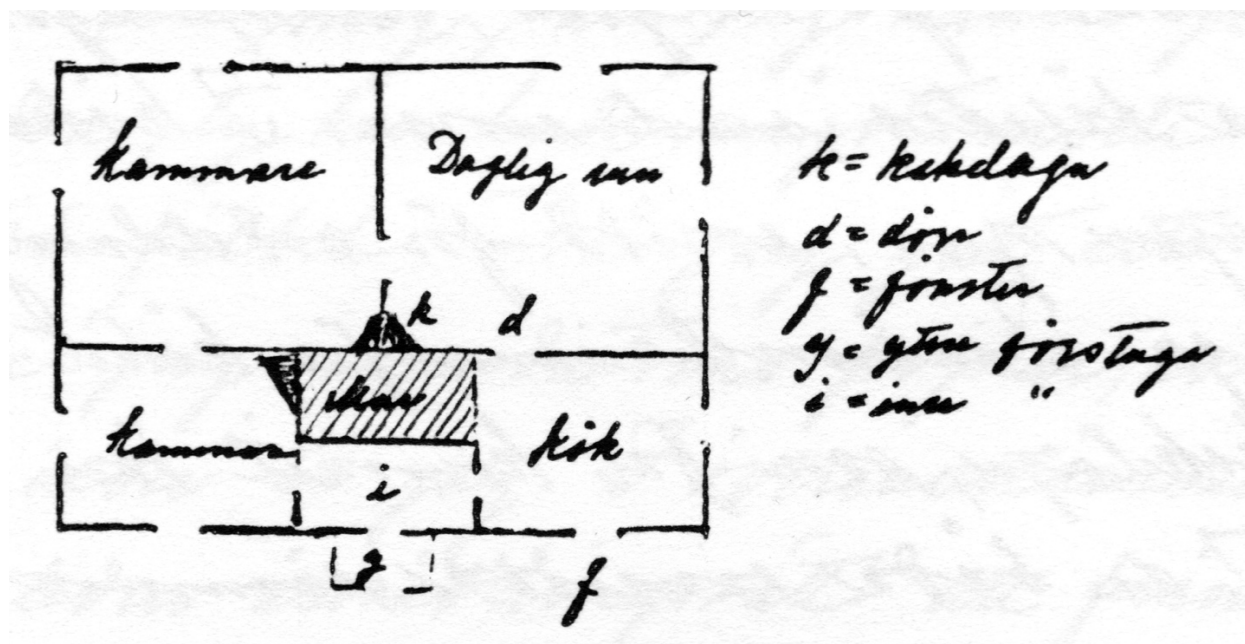 Kammare
Daglig rum
k
d
Kammare
Mur
Kök
i
y
f
k = kakelugn
d = dörr
f = fönster
y = yttre förstuga
i = inre "